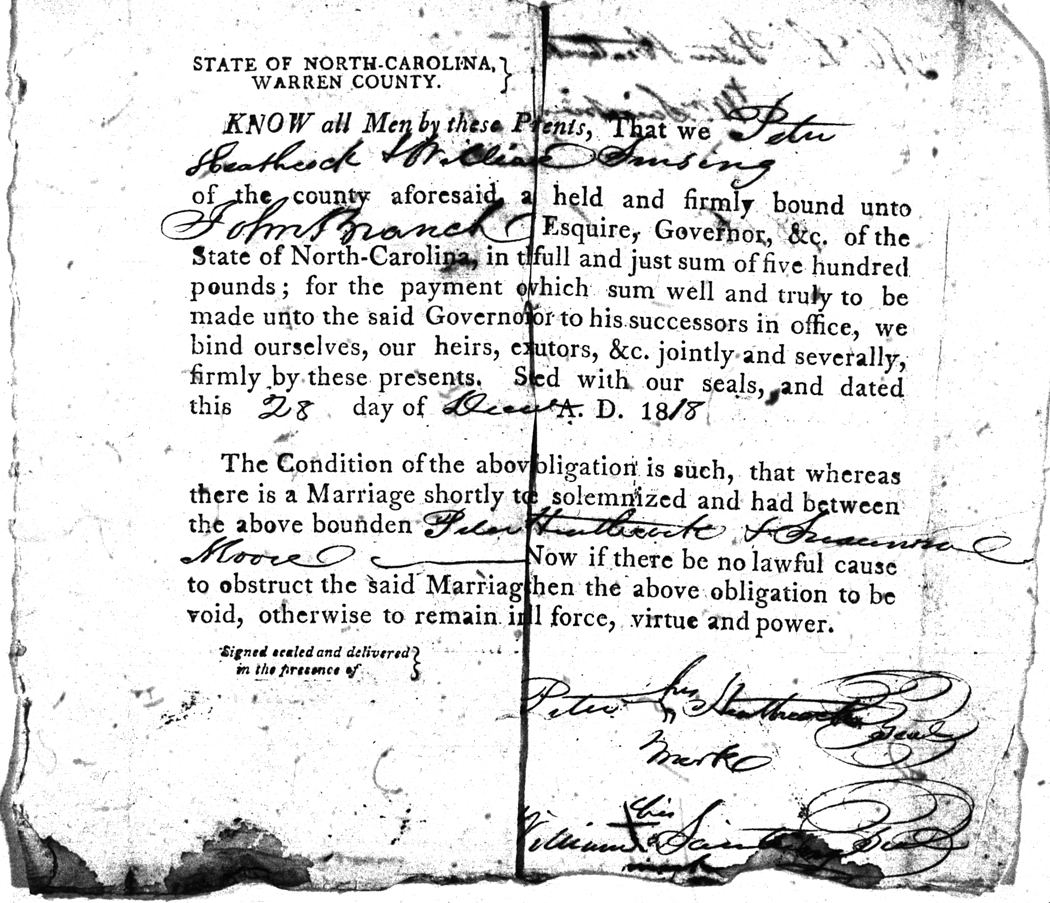 STATE OF NORTH-CAROLINA,
WARREN COUNTY.
KNOW all Men by these Prents, That we Peter
Heathcock & William
of the county aforesaid, a held and firmly bound unto
John Branch Esquire, Governor, &c. of the
State of North-Carolina, in t full and just sum of five hundred
pounds; for the payment which sum well and truly to be
made unto the said Governo or to his successors in office, we
bind ourselves, our heirs, exutors, &c. jointly and severally,
firmly by these presents. Sed with our seals, and dated
this 28 day of Decr A. D. 1818
The Condition of the abov bligation is such, that whereas
there is a Marriage shortly to solemnized and had between
the above bounden Peter Heathcock & Susanna
Moore Now if there be no lawful cause
to obstruct the said Marriag hen the above obligation to be
void, otherwise to remain in ll force, virtue and power.
Signed sealed and delivered
in the presence of
Peter his Heathcock Seal
mark
William his Seal
mark